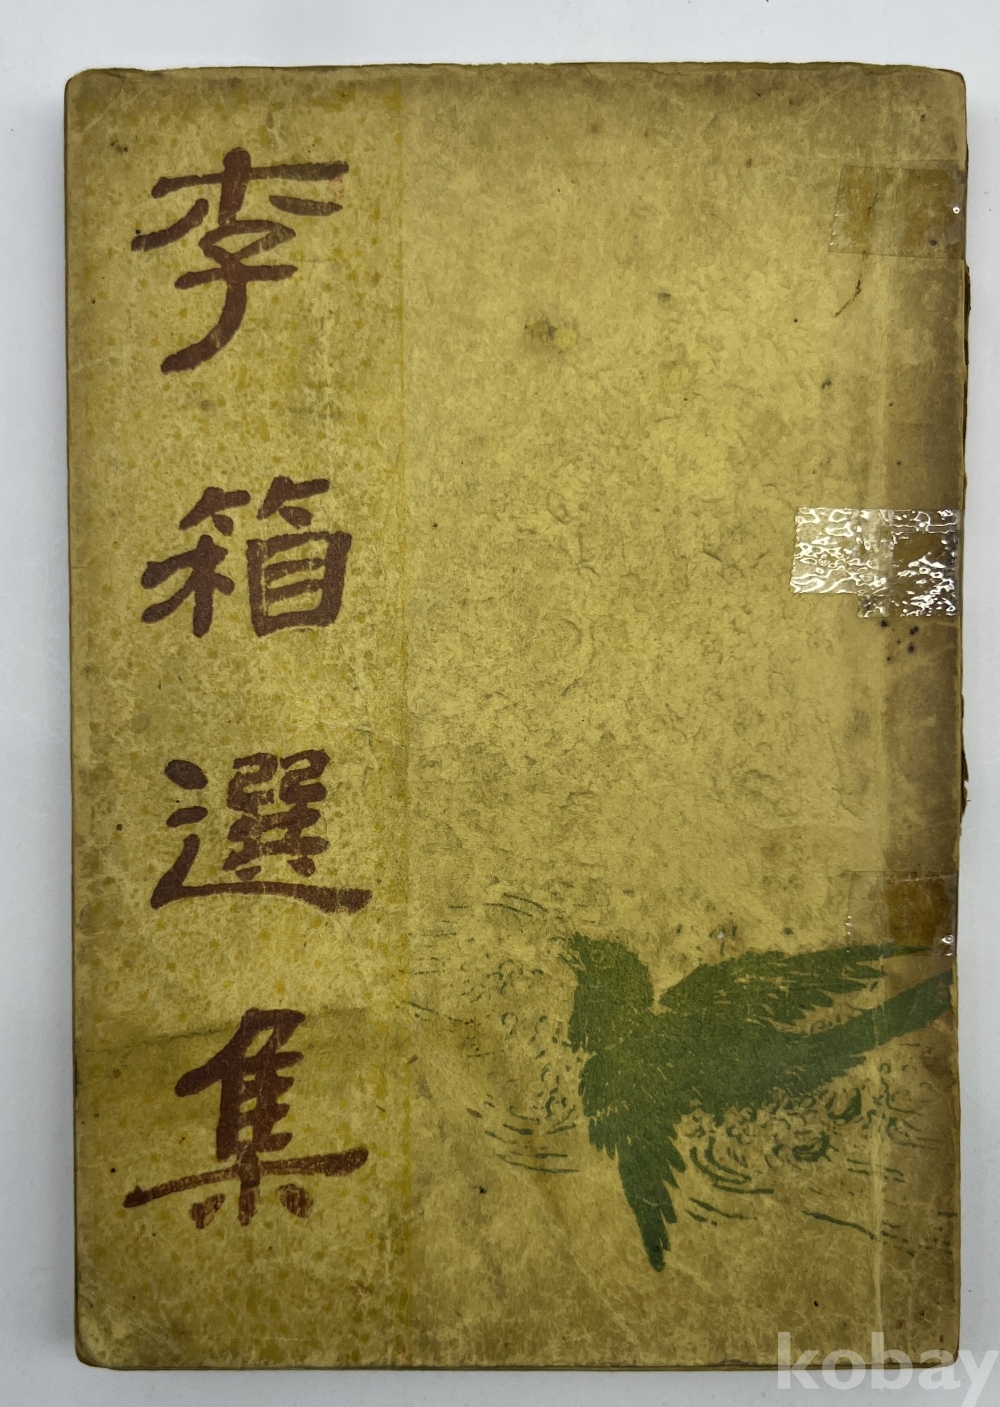 李
箱
選
集
kobay